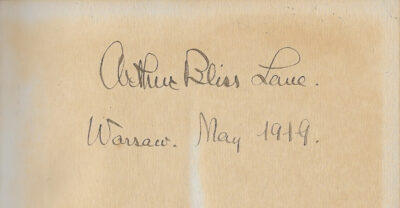 Arthur Bliss Lane.
Warsaw. May 1919.